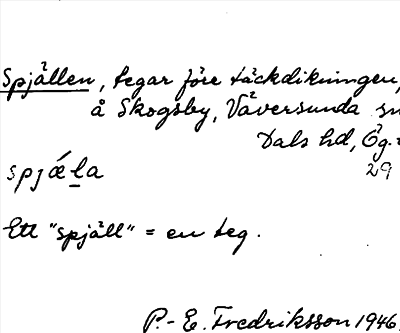 Spjällen, tegar före täckdikningen,
å Skogsby, Väversunda sn
Dals hd, Ög.
29
spjǽla
Ett "spjäll" = en teg.
P.-E. Fredriksson 1946.